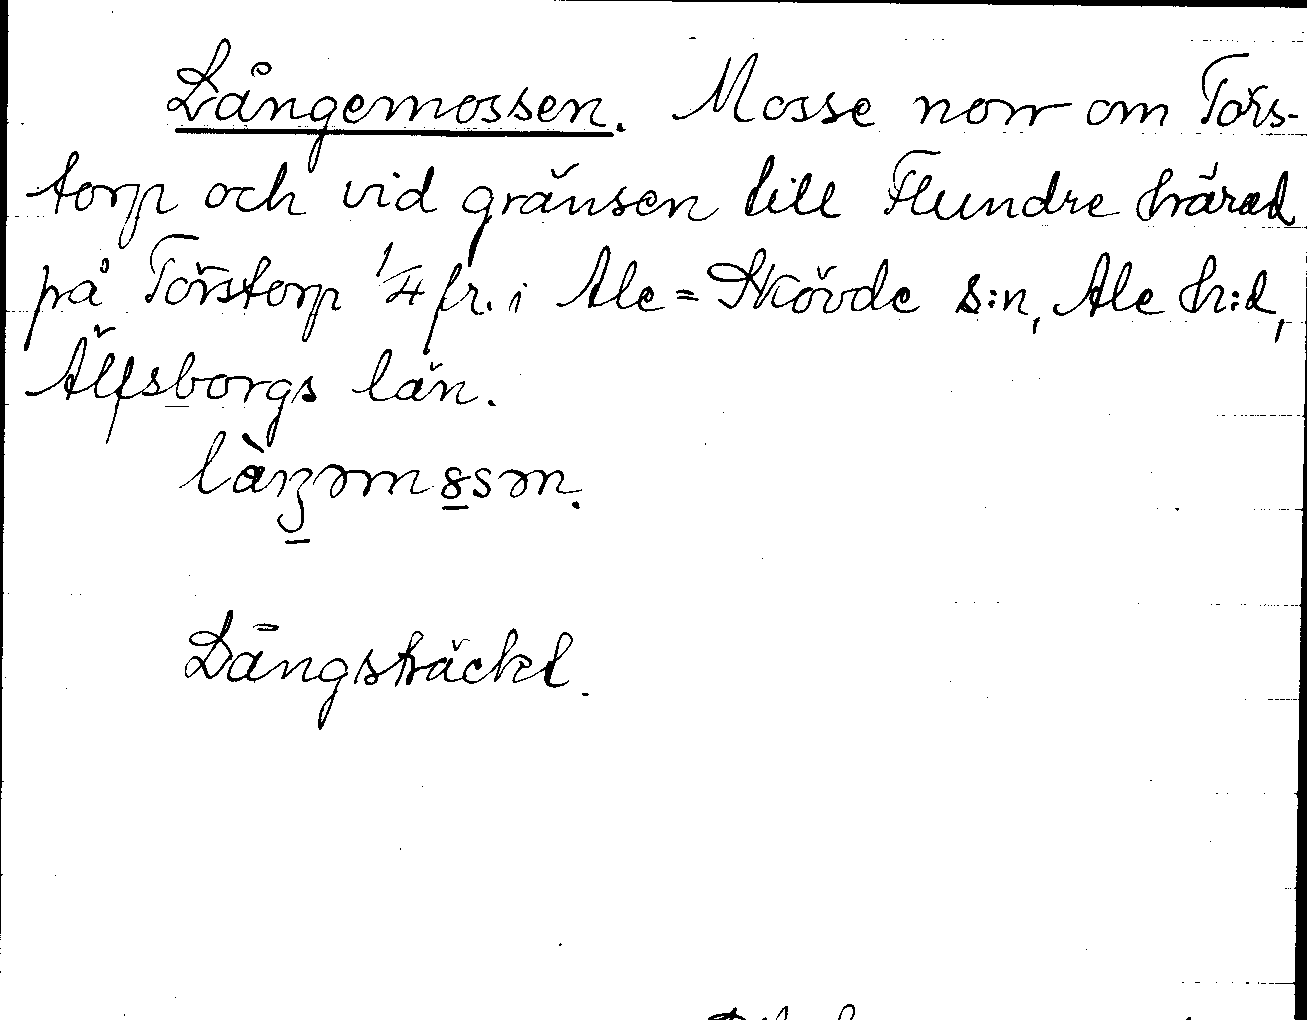 Långemossen. Mosse norr om Törs-
torp och vid gränsen till Flundre härad
på Törstorp 1/4 fr. i Ale=Skövde s:n, Ale h:d,
Älfsborgs län.
Långsträckt.